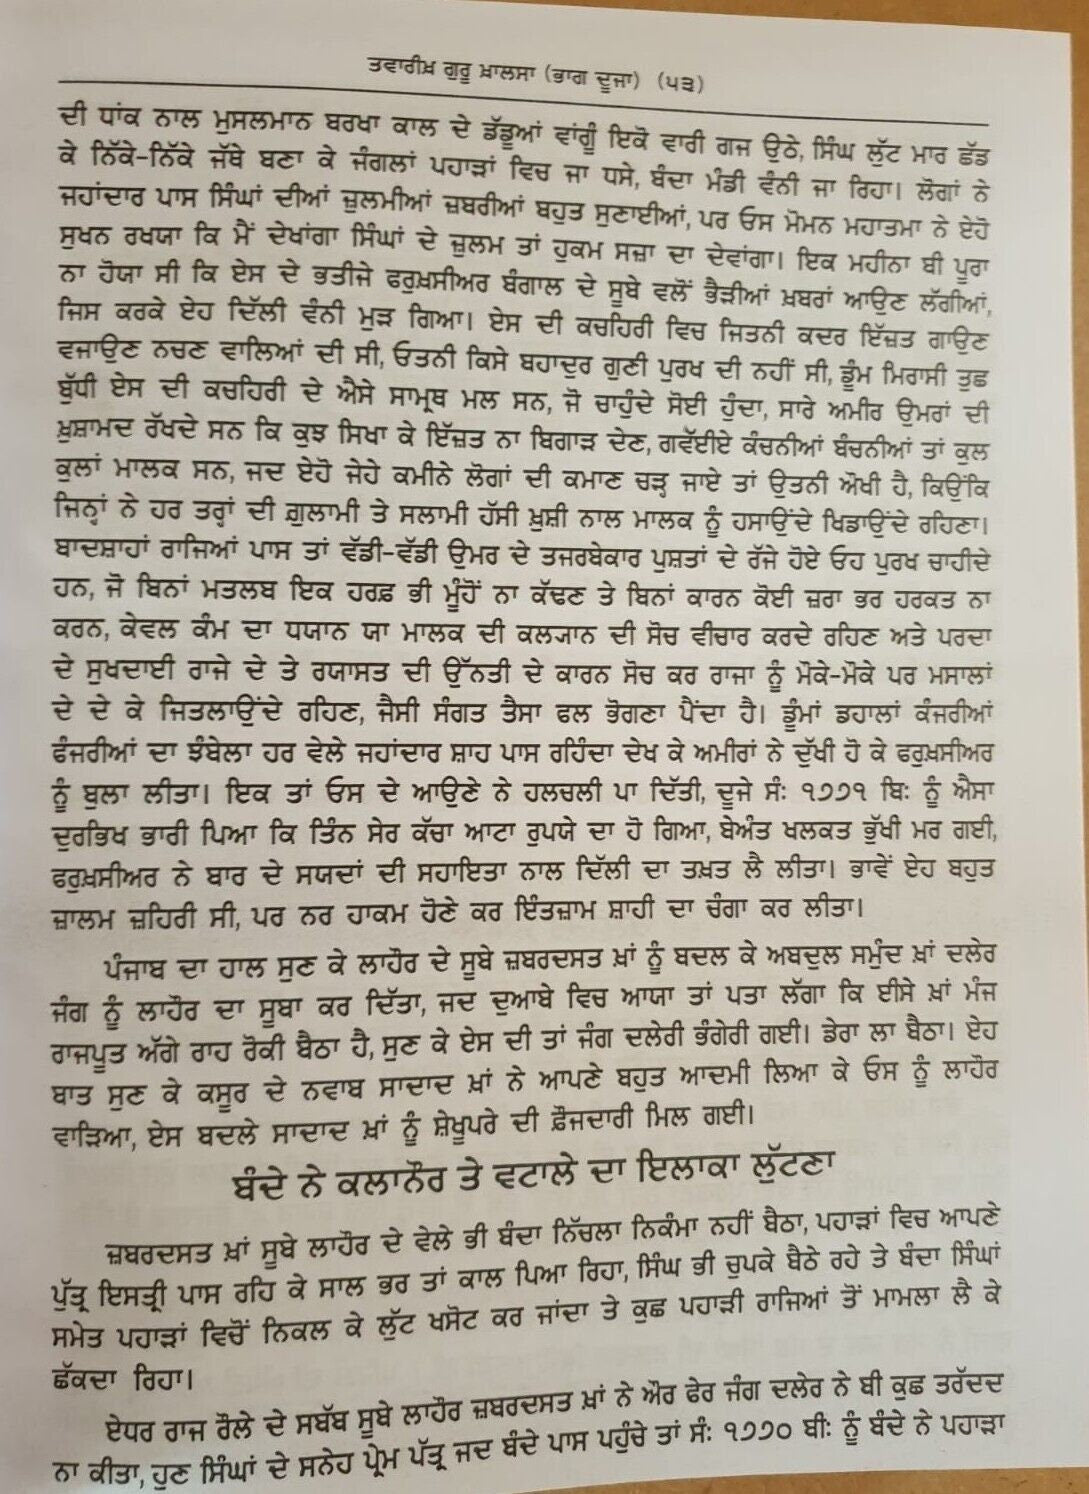 ਤਵਾਰੀਖ਼ ਗੁਰੂ ਖ਼ਾਲਸਾ (ਭਾਗ ਦੂਜਾ) (੫੩)
ਦੀ ਧਾਂਕ ਨਾਲ ਮੁਸਲਮਾਨ ਬਰਖਾ ਕਾਲ ਦੇ ਡੱਡੂਆਂ ਵਾਂਗੂੰ ਇਕੋ ਵਾਰੀ ਗਜ ਉਠੇ, ਸਿੰਘ ਲੁੱਟ ਮਾਰ ਛੱਡ
ਕੇ ਨਿੱਕੇ-ਨਿੱਕੇ ਜੱਥੇ ਬਣਾ ਕੇ ਜੰਗਲਾਂ ਪਹਾੜਾਂ ਵਿਚ ਜਾ ਧਸੇ, ਬੰਦਾ ਮੰਡੀ ਵੰਨੀ ਜਾ ਰਿਹਾ। ਲੋਗਾਂ ਨੇ
ਜਹਾਂਦਾਰ ਪਾਸ ਸਿੰਘਾਂ ਦੀਆਂ ਜ਼ੁਲਮੀਆਂ ਜ਼ਬਰੀਆਂ ਬਹੁਤ ਸੁਣਾਈਆਂ, ਪਰ ਓਸ ਮੋਮਨ ਮਹਾਤਮਾ ਨੇ ਏਹੋ
ਸੁਖਨ ਰਖਯਾ ਕਿ ਮੈਂ ਦੇਖਾਂਗਾ ਸਿੰਘਾਂ ਦੇ ਜ਼ੁਲਮ ਤਾਂ ਹੁਕਮ ਸਜ਼ਾ ਦਾ ਦੇਵਾਂਗਾ। ਇਕ ਮਹੀਨਾ ਬੀ ਪੂਰਾ
ਨਾ ਹੋਯਾ ਸੀ ਕਿ ਏਸ ਦੇ ਭਤੀਜੇ ਫਰੁਖ਼ਸੀਅਰ ਬੰਗਾਲ ਦੇ ਸੂਬੇ ਵਲੋਂ ਭੈੜੀਆਂ ਖ਼ਬਰਾਂ ਆਉਣ ਲੱਗੀਆਂ,
ਜਿਸ ਕਰਕੇ ਏਹ ਦਿੱਲੀ ਵੰਨੀ ਮੁੜ ਗਿਆ। ਏਸ ਦੀ ਕਚਹਿਰੀ ਵਿਚ ਜਿਤਨੀ ਕਦਰ ਇੱਜ਼ਤ ਗਾਉਣ
ਵਜਾਉਣ ਨਚਣ ਵਾਲਿਆਂ ਦੀ ਸੀ, ਓਤਨੀ ਕਿਸੇ ਬਹਾਦੁਰ ਗੁਣੀ ਪੁਰਖ ਦੀ ਨਹੀਂ ਸੀ, ਡੂੰਮ ਮਿਰਾਸੀ ਤੁਛ
ਬੁੱਧੀ ਏਸ ਦੀ ਕਚਹਿਰੀ ਦੇ ਐਸੇ ਸਾਮ੍ਰਥ ਮਲ ਸਨ, ਜੋ ਚਾਹੁੰਦੇ ਸੋਈ ਹੁੰਦਾ, ਸਾਰੇ ਅਮੀਰ ਉਮਰਾਂ ਦੀ
ਖ਼ੁਸ਼ਾਮਦ ਰੱਖਦੇ ਸਨ ਕਿ ਕੁਝ ਸਿਖਾ ਕੇ ਇੱਜ਼ਤ ਨਾ ਬਿਗਾੜ ਦੇਣ, ਗਵੱਈਏ ਕੰਚਨੀਆਂ ਬੰਚਨੀਆਂ ਤਾਂ ਕੁਲ
ਕੁਲਾਂ ਮਾਲਕ ਸਨ, ਜਦ ਏਹੋ ਜੇਹੇ ਕਮੀਨੇ ਲੋਗਾਂ ਦੀ ਕਮਾਣ ਚੜ੍ਹ ਜਾਏ ਤਾਂ ਉਤਨੀ ਔਖੀ ਹੈ, ਕਿਉਂਕਿ
ਜਿਨ੍ਹਾਂ ਨੇ ਹਰ ਤਰ੍ਹਾਂ ਦੀ ਗ਼ੁਲਾਮੀ ਤੇ ਸਲਾਮੀ ਹੱਸੀ ਖ਼ੁਸ਼ੀ ਨਾਲ ਮਾਲਕ ਨੂੰ ਹਸਾਉਂਦੇ ਖਿਡਾਉਂਦੇ ਰਹਿਣਾ।
ਬਾਦਸ਼ਾਹਾਂ ਰਾਜਿਆਂ ਪਾਸ ਤਾਂ ਵੱਡੀ-ਵੱਡੀ ਉਮਰ ਦੇ ਤਜਰਬੇਕਾਰ ਪੁਸ਼ਤਾਂ ਦੇ ਰੱਜੇ ਹੋਏ ਓਹ ਪੁਰਖ ਚਾਹੀਦੇ
ਹਨ, ਜੋ ਬਿਨਾਂ ਮਤਲਬ ਇਕ ਹਰਫ਼ ਭੀ ਮੂੰਹੋਂ ਨਾ ਕੱਢਣ ਤੇ ਬਿਨਾਂ ਕਾਰਨ ਕੋਈ ਜ਼ਰਾ ਭਰ ਹਰਕਤ ਨਾ
ਕਰਨ, ਕੇਵਲ ਕੰਮ ਦਾ ਧਯਾਨ ਯਾ ਮਾਲਕ ਦੀ ਕਲ੍ਯਾਨ ਦੀ ਸੋਚ ਵੀਚਾਰ ਕਰਦੇ ਰਹਿਣ ਅਤੇ ਪਰਦਾ
ਦੇ ਸੁਖਦਾਈ ਰਾਜੇ ਦੇ ਤੇ ਰਯਾਸਤ ਦੀ ਉੱਨਤੀ ਦੇ ਕਾਰਨ ਸੋਚ ਕਰ ਰਾਜਾ ਨੂੰ ਮੌਕੇ-ਮੌਕੇ ਪਰ ਮਸਾਲਾਂ
ਦੇ ਦੇ ਕੇ ਜਿਤਲਾਉਂਦੇ ਰਹਿਣ, ਜੈਸੀ ਸੰਗਤ ਤੈਸਾ ਫਲ ਭੋਗਣਾ ਪੈਂਦਾ ਹੈ। ਡੂੰਮਾਂ ਡਹਾਲਾਂ ਕੰਜਰੀਆਂ
ਫੰਜਰੀਆਂ ਦਾ ਝੰਬੇਲਾ ਹਰ ਵੇਲੇ ਜਹਾਂਦਾਰ ਸ਼ਾਹ ਪਾਸ ਰਹਿੰਦਾ ਦੇਖ ਕੇ ਅਮੀਰਾਂ ਨੇ ਦੁੱਖੀ ਹੋ ਕੇ ਫਰੁਖ਼ਸੀਅਰ
ਨੂੰ ਬੁਲਾ ਲੀਤਾ। ਇਕ ਤਾਂ ਓਸ ਦੇ ਆਉਣੇ ਨੇ ਹਲਚਲੀ ਪਾ ਦਿੱਤੀ, ਦੂਜੇ ਸੰ: ੧੭੭੧ ਬਿ: ਨੂੰ ਐਸਾ
ਦੁਰਭਿਖ ਭਾਰੀ ਪਿਆ ਕਿ ਤਿੰਨ ਸੇਰ ਕੱਚਾ ਆਟਾ ਰੁਪਯੇ ਦਾ ਹੋ ਗਿਆ, ਬੇਅੰਤ ਖਲਕਤ ਭੁੱਖੀ ਮਰ ਗਈ,
ਫਰੁਖ਼ਸੀਅਰ ਨੇ ਬਾਰ ਦੇ ਸਯਦਾਂ ਦੀ ਸਹਾਇਤਾ ਨਾਲ ਦਿੱਲੀ ਦਾ ਤਖ਼ਤ ਲੈ ਲੀਤਾ। ਭਾਵੇਂ ਏਹ ਬਹੁਤ
ਜ਼ਾਲਮ ਜ਼ਹਿਰੀ ਸੀ, ਪਰ ਨਰ ਹਾਕਮ ਹੋਣੇ ਕਰ ਇੰਤਜ਼ਾਮ ਸ਼ਾਹੀ ਦਾ ਚੰਗਾ ਕਰ ਲੀਤਾ।
ਪੰਜਾਬ ਦਾ ਹਾਲ ਸੁਣ ਕੇ ਲਾਹੌਰ ਦੇ ਸੂਬੇ ਜ਼ਬਰਦਸਤ ਖ਼ਾਂ ਨੂੰ ਬਦਲ ਕੇ ਅਬਦੁਲ ਸਮੁੰਦ ਖ਼ਾਂ ਦਲੇਰ
ਜੰਗ ਨੂੰ ਲਾਹੌਰ ਦਾ ਸੂਬਾ ਕਰ ਦਿੱਤਾ, ਜਦ ਦੁਆਬੇ ਵਿਚ ਆਯਾ ਤਾਂ ਪਤਾ ਲੱਗਾ ਕਿ ਈਸੇ ਖ਼ਾਂ ਮੰਜ
ਰਾਜਪੂਤ ਅੱਗੇ ਰਾਹ ਰੋਕੀ ਬੈਠਾ ਹੈ, ਸੁਣ ਕੇ ਏਸ ਦੀ ਤਾਂ ਜੰਗ ਦਲੇਰੀ ਭੰਗੇਰੀ ਗਈ। ਡੇਰਾ ਲਾ ਬੈਠਾ। ਏਹ
ਬਾਤ ਸੁਣ ਕੇ ਕਸੂਰ ਦੇ ਨਵਾਬ ਸਾਦਾਦ ਖ਼ਾਂ ਨੇ ਆਪਣੇ ਬਹੁਤ ਆਦਮੀ ਲਿਆ ਕੇ ਓਸ ਨੂੰ ਲਾਹੌਰ
ਵਾੜਿਆ, ਏਸ ਬਦਲੇ ਸਾਦਾਦ ਖ਼ਾਂ ਨੂੰ ਸ਼ੇਖੂਪਰੇ ਦੀ ਫ਼ੌਜਦਾਰੀ ਮਿਲ ਗਈ।
ਬੰਦੇ ਨੇ ਕਲਾਨੌਰ ਤੇ ਵਟਾਲੇ ਦਾ ਇਲਾਕਾ ਲੁੱਟਣਾ
ਜ਼ਬਰਦਸਤ ਖ਼ਾਂ ਸੂਬੇ ਲਾਹੌਰ ਦੇ ਵੇਲੇ ਭੀ ਬੰਦਾ ਨਿੱਚਲਾ ਨਿਕੰਮਾ ਨਹੀਂ ਬੈਠਾ, ਪਹਾੜਾਂ ਵਿਚ ਆਪਣੇ
ਪੁੱਤ੍ਰ ਇਸਤ੍ਰੀ ਪਾਸ ਰਹਿ ਕੇ ਸਾਲ ਭਰ ਤਾਂ ਕਾਲ ਪਿਆ ਰਿਹਾ, ਸਿੰਘ ਭੀ ਚੁਪਕੇ ਬੈਠੇ ਰਹੇ ਤੇ ਬੰਦਾ ਸਿੰਘਾਂ
ਸਮੇਤ ਪਹਾੜਾਂ ਵਿਚੋਂ ਨਿਕਲ ਕੇ ਲੁੱਟ ਖਸੋਟ ਕਰ ਜਾਂਦਾ ਤੇ ਕੁਛ ਪਹਾੜੀ ਰਾਜਿਆਂ ਤੋਂ ਮਾਮਲਾ ਲੈ ਕੇ
ਛੱਕਦਾ ਰਿਹਾ।
ਏਧਰ ਰਾਜ ਰੌਲੇ ਦੇ ਸਬੱਬ ਸੂਬੇ ਲਾਹੌਰ ਜ਼ਬਰਦਸਤ ਖ਼ਾਂ ਨੇ ਔਰ ਫੇਰ ਜੰਗ ਦਲੇਰ ਨੇ ਬੀ ਕੁਛ ਤਰੱਦਦ
ਨਾ ਕੀਤਾ, ਹੁਣ ਸਿੰਘਾਂ ਦੇ ਸਨੇਹ ਪ੍ਰੇਮ ਪੱਤ੍ਰ ਜਦ ਬੰਦੇ ਪਾਸ ਪਹੁੰਚੇ ਤਾਂ ਸੰ: ੧੭੭੦ ਬੀ: ਨੂੰ ਬੰਦੇ ਨੇ ਪਹਾੜਾ